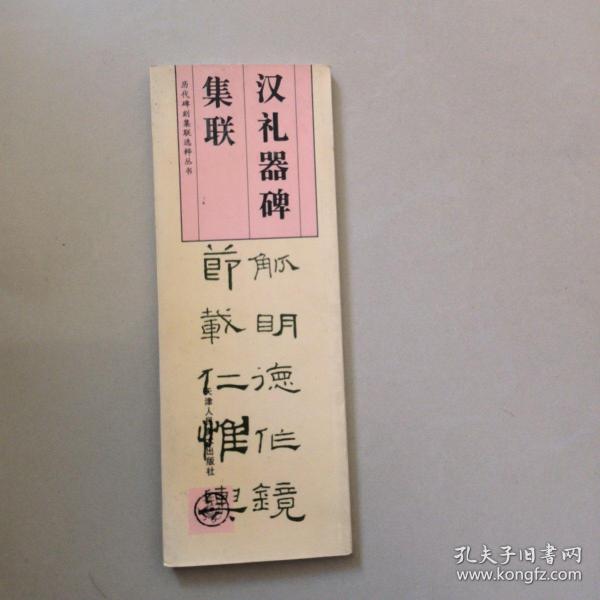 汉礼器碑
集联
历代碑刻集联选粹丛书
觚明德作镜
节载仁惟舆
天津人民美术出版社
孔夫子旧书网
www.kongfz.com